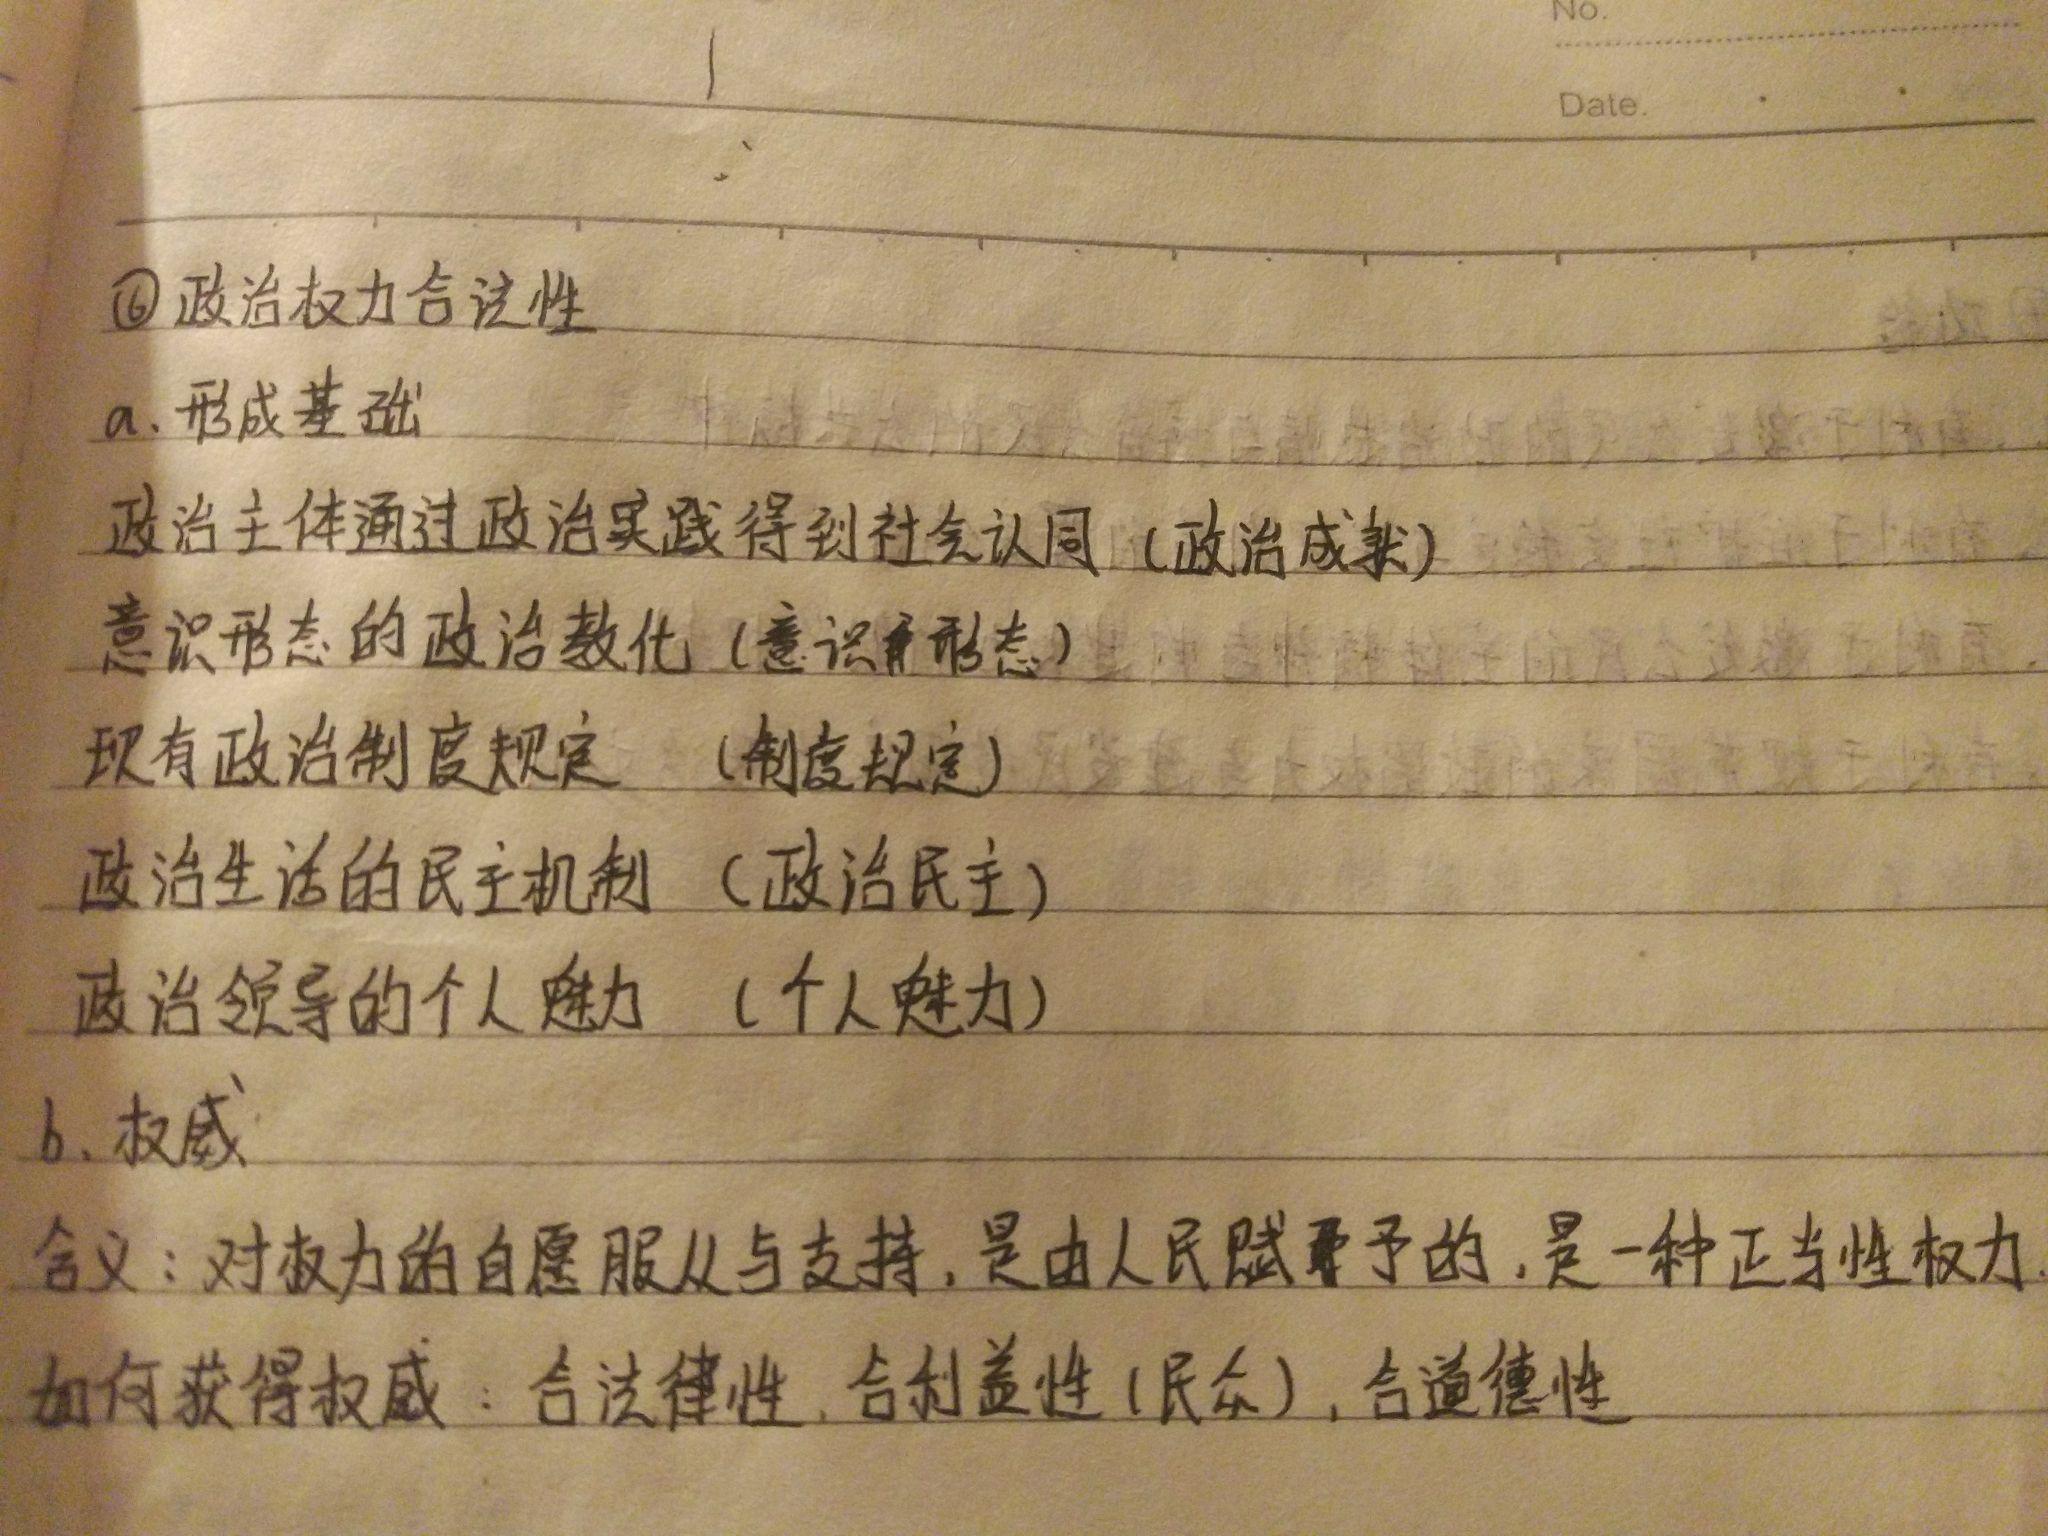 No.
Date.
⑥政治权力合法性
a.形成基础
政治主体通过政治实践得到社会认同(政治成就)
意识形态的政治教化(意识形态)
现有政治制度规定 (制度规定)
政治生活的民主机制 (政治民主)
政治领导的个人魅力 (个人魅力)
b.权威
含义:对权力的自愿服从与支持,是由人民赋予的,是一种正当性权力.
如何获得权威:合法律性,合利益性(民众),合道德性